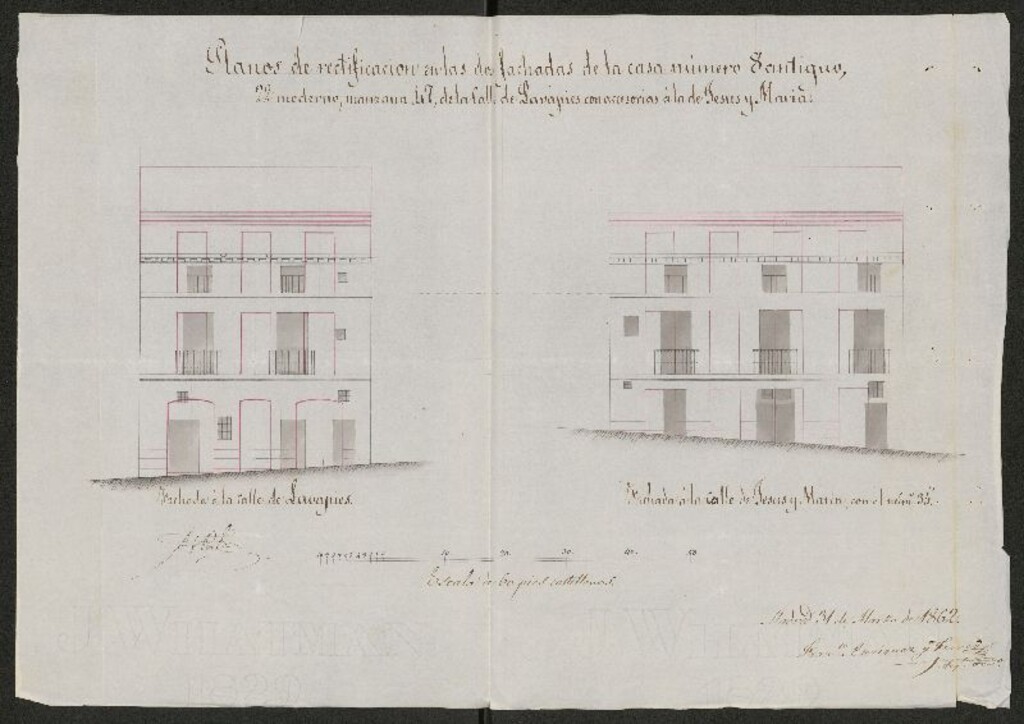 Planos de rectificacion en las dos fachadas de la casa número 8 antiguo,
22 moderno, manzana 47, de la Calle de Lavapies con accesorias á la de Jesus y Maria.
Fachada á la calle de Lavapies.
Fachada á la calle de Jesus y Maria, con el núm.º 35.
10. 20. 30. 40. 50
Escala de 60 pies castellanos.
Madrid 31 de Marzo de 1862.